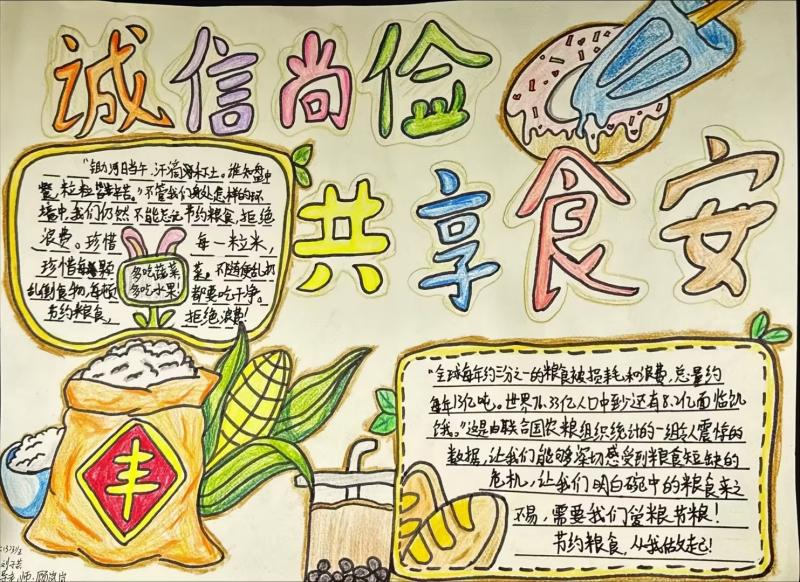 诚信尚俭
共享食安
"锄禾日当午，汗滴禾下土。谁知盘中
餐，粒粒皆辛苦。"不管我们身处怎样的环
境中，我们仍然不能忘记节约粮食，拒绝
浪费。珍惜每一粒米，
珍惜每颗菜。不随便乱扔
乱倒食物，每顿都要吃干净。
节约粮食，拒绝浪费！
多吃蔬菜
多吃水果！
丰
"全球每年约三分之一的粮食被损耗和浪费，总量约
每年13亿吨。世界76.33亿人口中至少还有8.2亿面临饥
饿。"这是由联合国农粮组织统计的一组令人震惊的
数据，让我们能够深切感受到粮食短缺的
危机，让我们明白碗中的粮食来之
不易，需要我们爱粮节粮！
节约粮食，从我做起！